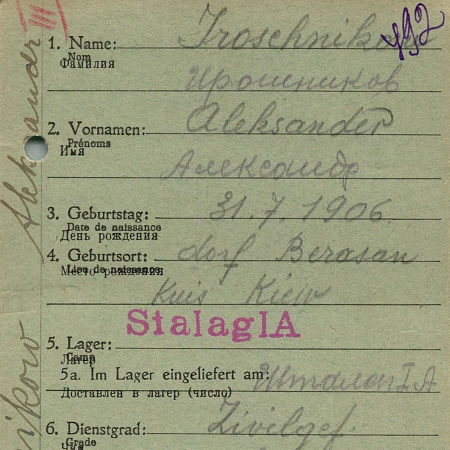 III
492
1. Name: Iroschnikow
Nom
Фамилия
Ирошников
2. Vornamen: Aleksander
Prénoms
Имя
Александр
3. Geburtstag: 31.7.1906.
Date de naissance
День рождения
4. Geburtsort: dorf Berasan
Lieu de naissance
Место рождения
Kreis Kiew
Stalag IA
5. Lager:
Camp
Лагер
5a. Im Lager eingeliefert am: Шталаг I A
Доставлен в лагер (число)
6. Dienstgrad: Zivilgef.
Grade
Aleksander